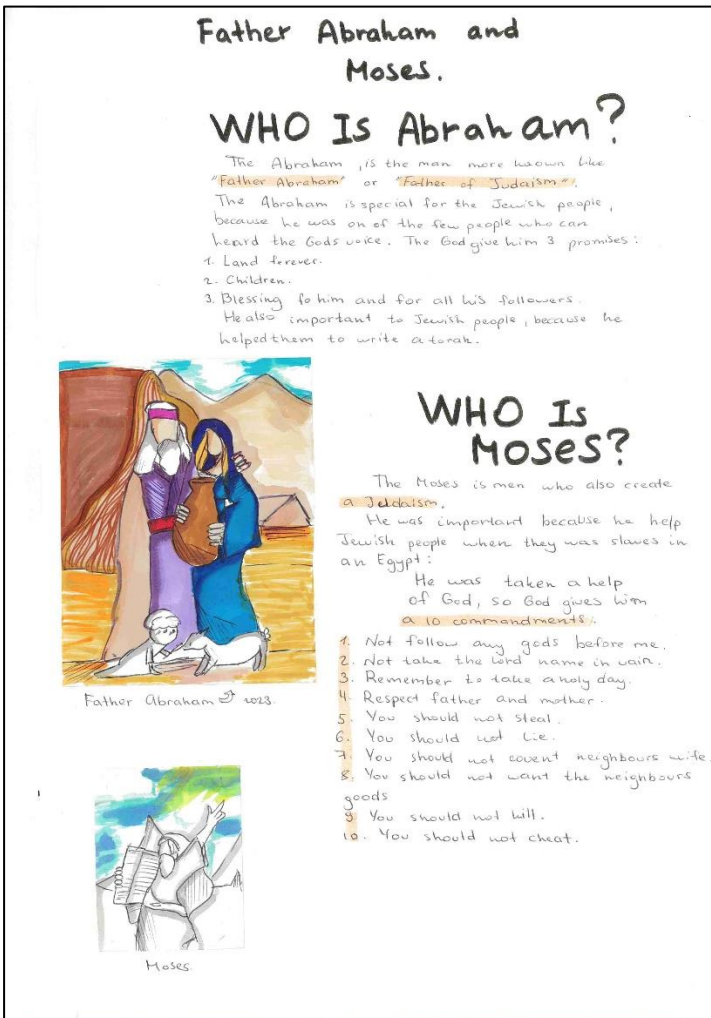 Father Abraham and
Moses.
WHO Is Abraham?
The Abraham , is the man more known like
"Father Abraham" or "Father of Judaism".
The Abraham is special for the Jewish people,
because he was on of the few people who can
heard the Gods voice. The God give him 3 promises:
1. Land forever.
2. Children.
3. Blessing fo him and for all his followers.
He also important to Jewish people, because he
helped them to write a torah.
WHO Is
MOSES?
The Moses is men who also create
a Jeldaism.
He was important because he help
Jewish people when they was slaves in
an Egypt:
He was taken a help
of God, so God gives him
a 10 commandments.
1. Not follow any gods before me.
2. Not take the lord name in vain.
3. Remember to take a holy day.
4. Respect father and mother.
5. You should not steal.
6. You should not lie.
7. You should not covent neighbours wife.
8. You should not want the neighbours
goods
9 You should not kill.
10. You should not cheat.
Father Abraham 2023.
Moses